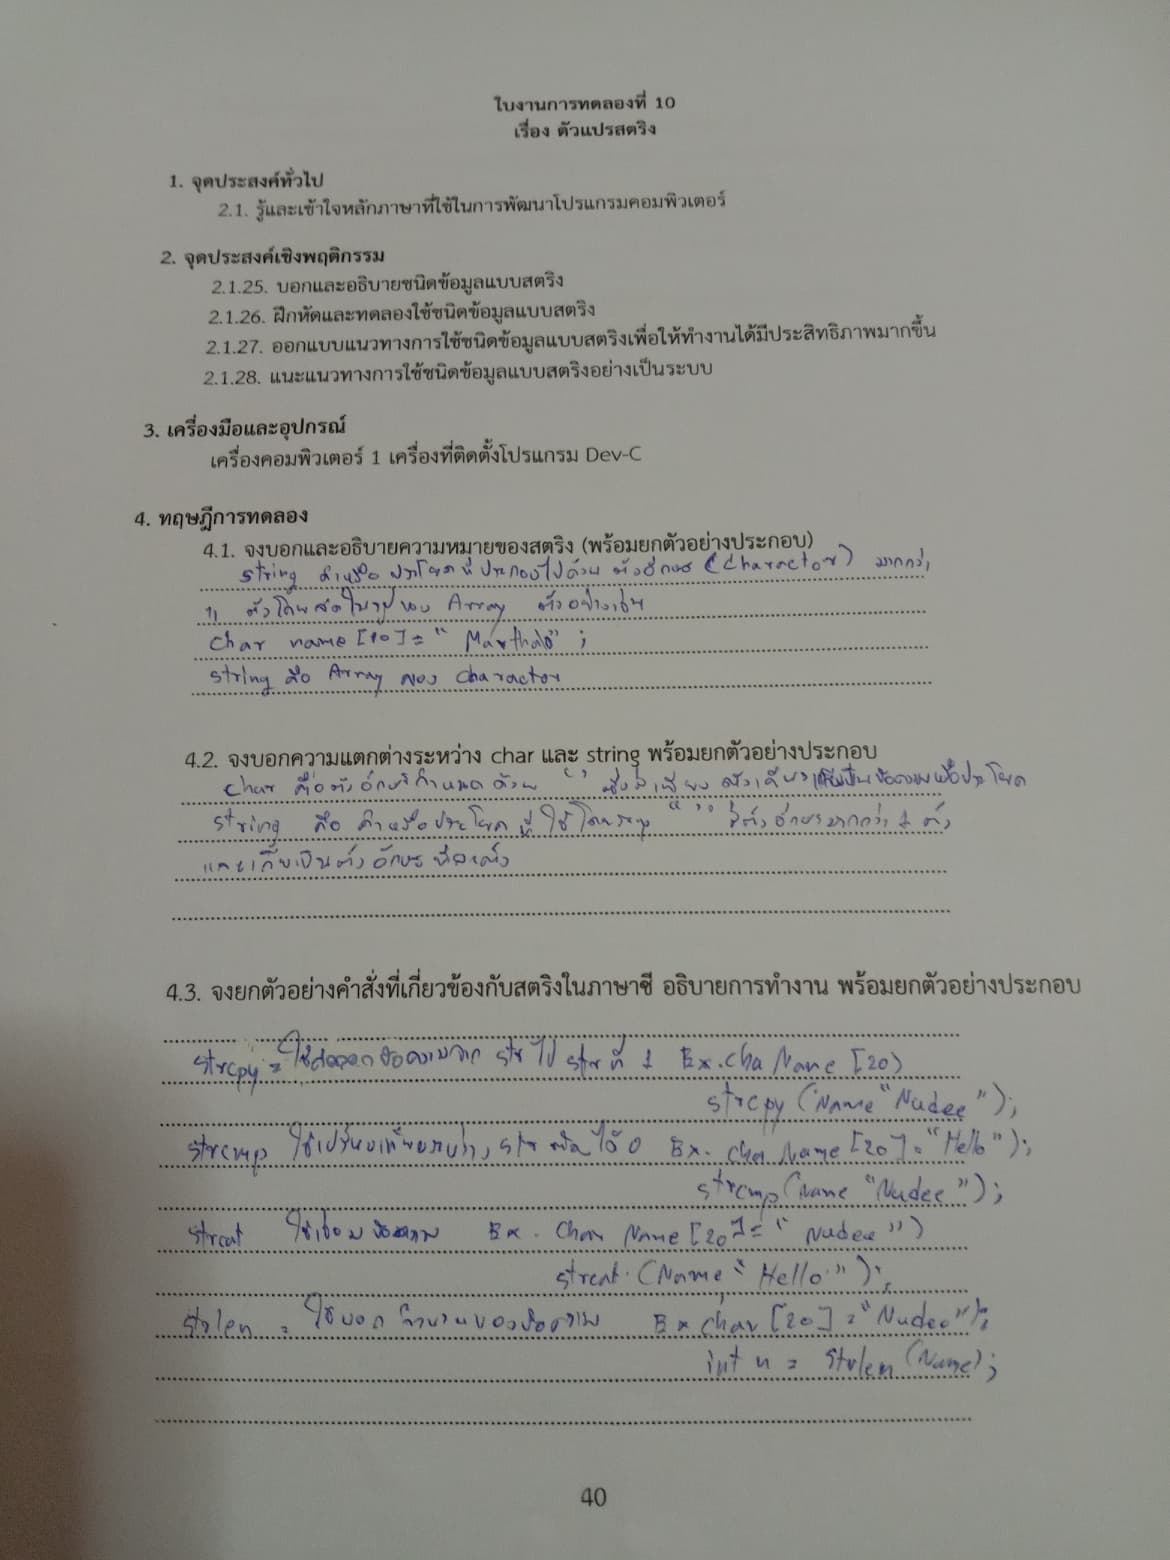 ใบงานการทดลองที่ 10
เรื่อง ตัวแปรสตริง
1. จุดประสงค์ทั่วไป
2.1. รู้และเข้าใจหลักภาษาที่ใช้ในการพัฒนาโปรแกรมคอมพิวเตอร์
2. จุดประสงค์เชิงพฤติกรรม
2.1.25. บอกและอธิบายชนิดข้อมูลแบบสตริง
2.1.26. ฝึกหัดและทดลองใช้ชนิดข้อมูลแบบสตริง
2.1.27. ออกแบบแนวทางการใช้ชนิดข้อมูลแบบสตริงเพื่อให้ทำงานได้มีประสิทธิภาพมากขึ้น
2.1.28. แนะแนวทางการใช้ชนิดข้อมูลแบบสตริงอย่างเป็นระบบ
3. เครื่องมือและอุปกรณ์
เครื่องคอมพิวเตอร์ 1 เครื่องที่ติดตั้งโปรแกรม Dev-C
4. ทฤษฎีการทดลอง
4.1. จงบอกและอธิบายความหมายของสตริง (พร้อมยกตัวอย่างประกอบ)
string คำหรือ ประโยคที่ประกอบไปด้วย ตัวอักษร (Charactor) มากกว่า
1 ตัว Array ตัวอย่างเช่น
Char name [20] = " ;
string คือ Array ของ Charactor
4.2. จงบอกความแตกต่างระหว่าง char และ string พร้อมยกตัวอย่างประกอบ
Char คือตัวอักษรกำหนดด้วย ' ' ซึ่งมีเพียง ตัวเดียว
string คือ คำหรือประโยค ที่ใช้ " " มีตัวอักษรมากกว่า 1 ตัว
และเก็บเป็นตัวอักษรทีละตัว
4.3. จงยกตัวอย่างคำสั่งที่เกี่ยวข้องกับสตริงในภาษาซี อธิบายการทำงาน พร้อมยกตัวอย่างประกอบ
strcpy = ใช้คัดลอกข้อความจาก str ไป str ที่ 1 Ex. Cha Name [20)
strcpy (Name "Nudee ");
strcmp ใช้เปรียบเทียบระหว่าง str Ex. Cha Name [20] = "Hello");
strcmp (Name "Nudee ");
strcat ใช้เชื่อมข้อความ Ex. Char Name [20] = " Nudee ")
strcat. (Name " Hello ");
stulen = ใช้บอกจำนวนของข้อความ Ex Char [20] = "Nudee");
int n = stulen (Name);
40